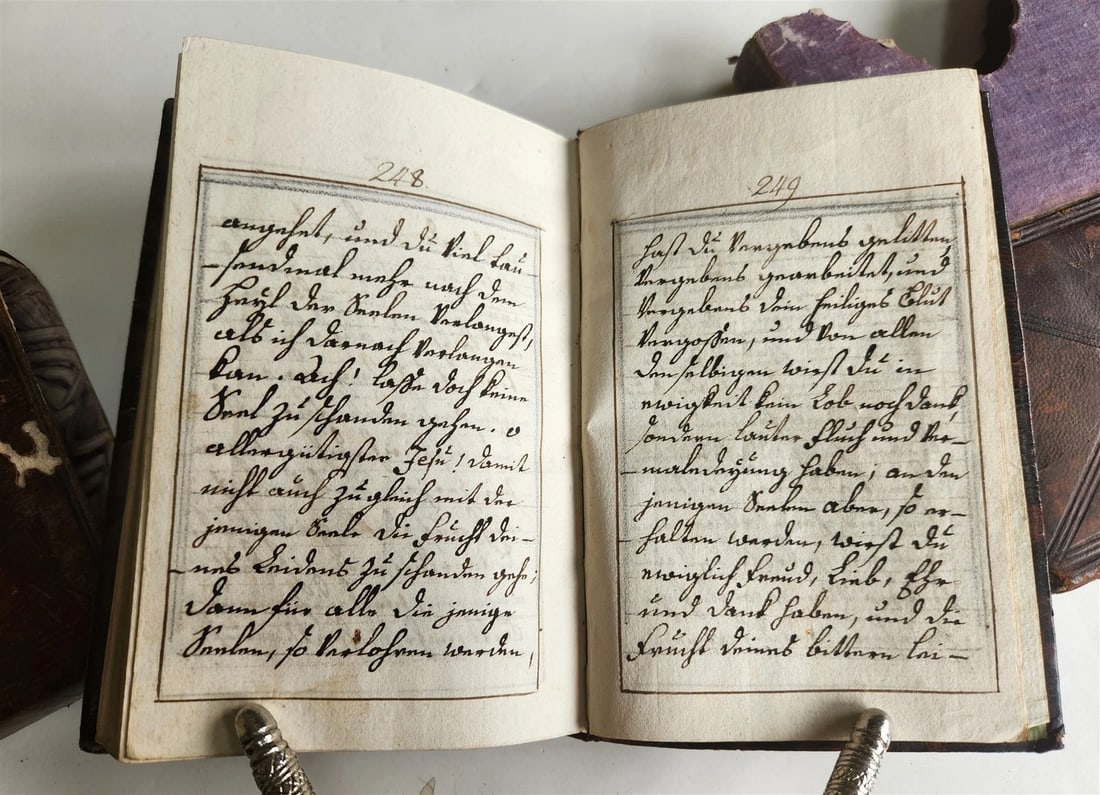 248.
angehet, und du viel tau-
sendmal mehr nach dem
Heyl der Seelen verlangest,
als ich darnach verlangen
kan. Ach! lasse doch keine
Seel zu schanden gehen. o
allergütigster Jesu! damit
nicht auch zugleich mit der
jenigen Seele die Frucht dei-
nes Leidens zu schanden gehe;
dann für alle die jenige
Seelen, so verlohren werden,
249
hast du vergebens gelitten,
vergebens gearbeitet, und
vergebens dein heiliges Blut
vergossen, und von allen
denselbigen wirst du in
ewigkeit kein Lob noch danck,
sondern lauter fluch und ver-
maledeyung haben; an den
jenigen Seelen aber, so er-
halten werden, wirst du
ewiglich freud, Lieb, Ehr
und danck haben, und die
Frucht deines bittern lei-